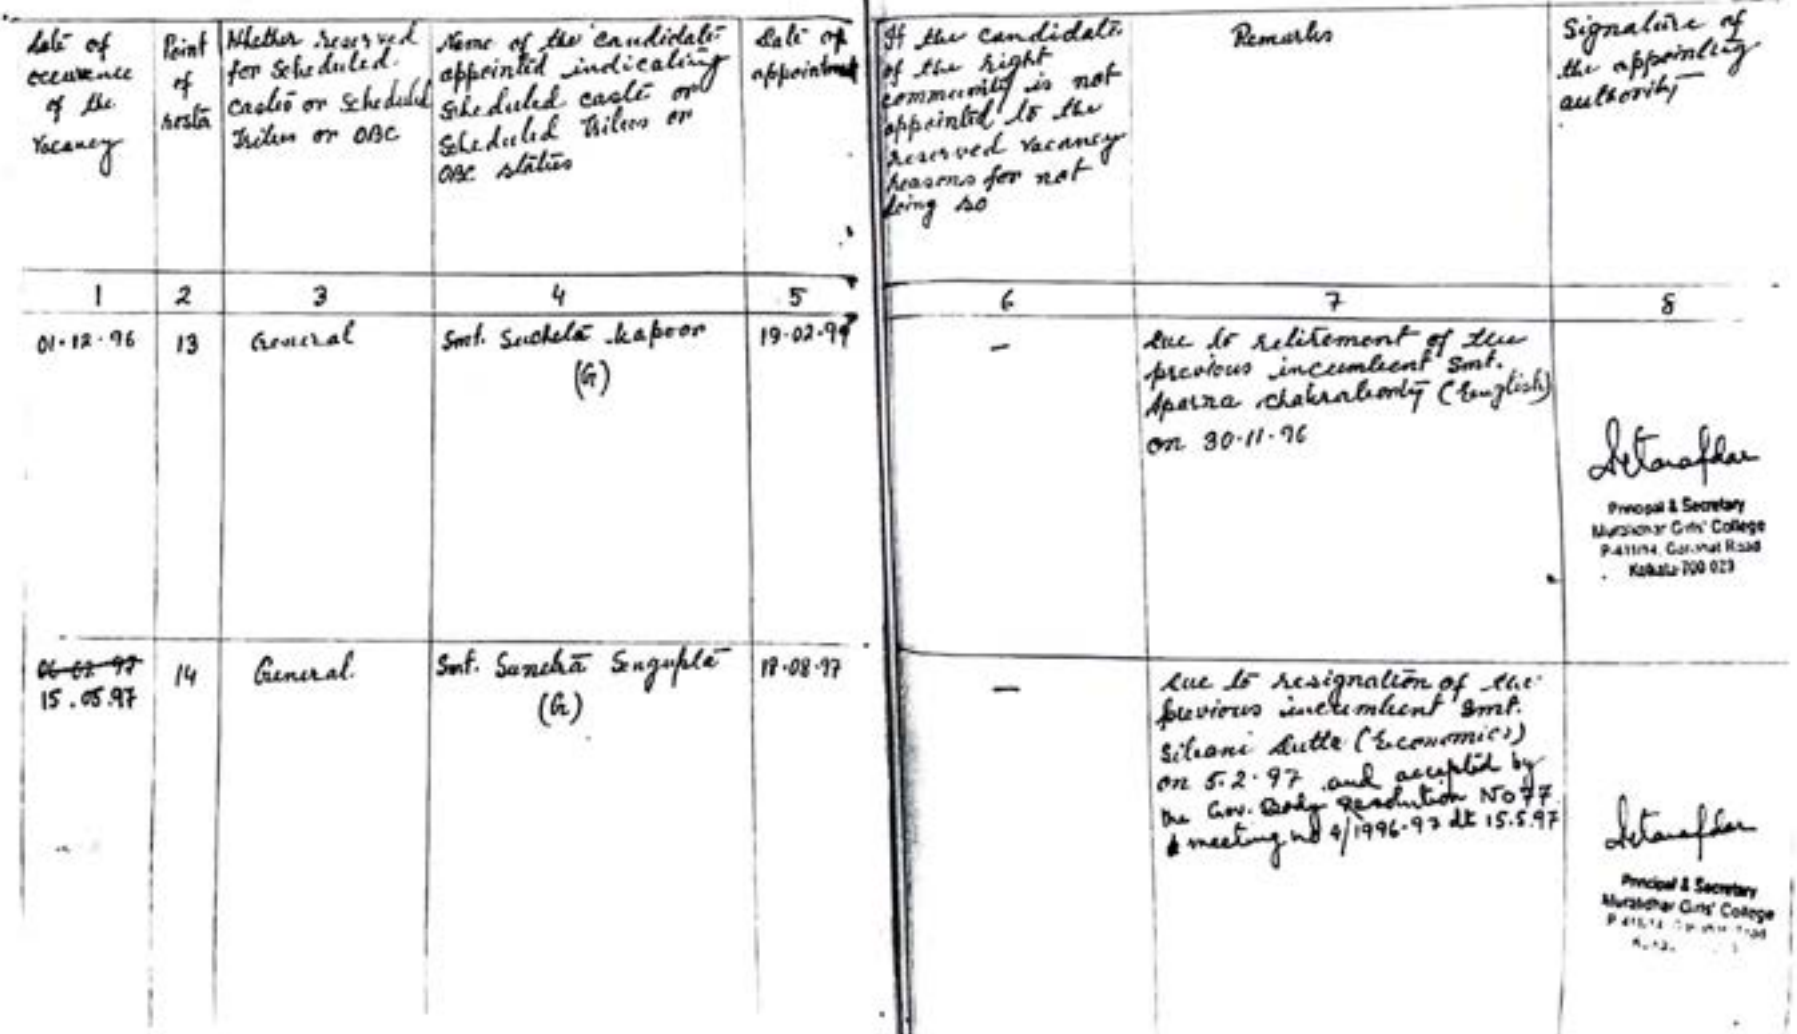 Date of
occurence
of the
Vacancy
Point
of
rosta
Whether reserved
for Scheduled
Castes or Scheduled
Tribes or OBC
Name of the candidate
appointed indicating
Scheduled caste or
Scheduled Tribes or
OBC status
Date of
appointment
If the candidate
of the right
community is not
appointed to the
reserved vacancy
reasons for not
doing so
Remarks
Signature of
the appointing
authority
1
2
3
4
5
6
7
8
01-12-96
13
General
Smt. Sucheta Kapoor
(G)
19-02-99
—
Due to retirement of the
previous incumbent Smt.
Aparna Chakraborty (English)
on 30-11-96
Principal & Secretary
Muralidhar Girls' College
P-411/14, Gariahat Road
Kolkata-700 029
06-02-97
15.05.97
14
General.
Smt. Sengupta
(G)
18-08-97
—
Due to resignation of the
previous incumbent Smt.
Dutta (Economics)
on 5.2.97 and accepted by
the Gov. Body Resolution No 77
meeting no 4/1996-97 dt 15.5.97
Principal & Secretary
Muralidhar Girls' College